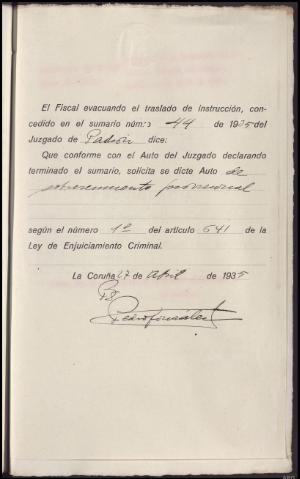 El Fiscal evacuando el traslado de instrucción, con-
cedido en el sumario núm. 44 de 1935 del
Juzgado de Padrón dice:
Que conforme con el Auto del Juzgado declarando
terminado el sumario, solicita se dicte Auto de
sobreseimiento provisional
según el número 1º del artículo 641 de la
Ley de Enjuiciamiento Criminal.
La Coruña 27 de Abril de 1935
Pedro González